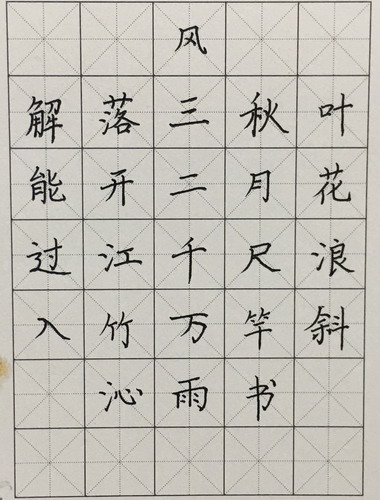 风
解落三秋叶
能开二月花
过江千尺浪
入竹万竿斜
沁雨书